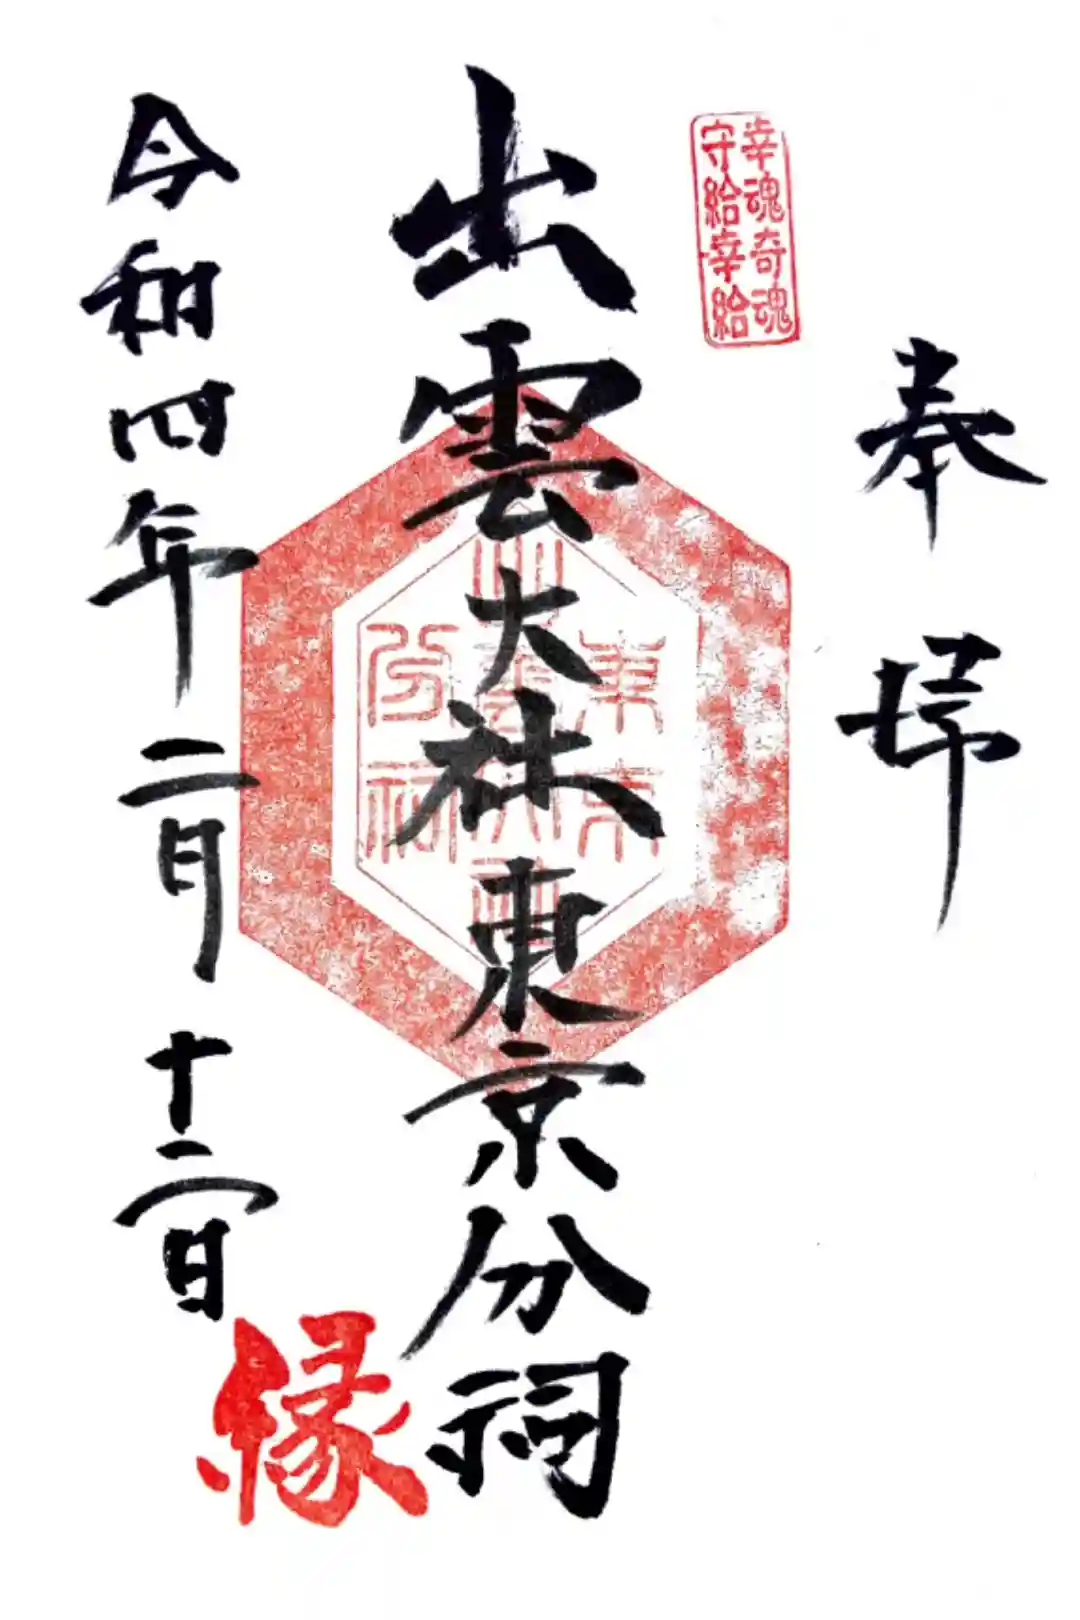 奉拝
幸魂奇魂
守給幸給
出雲大社東京分祠
東京
出雲大社
分祠
令和四年二月十二日
縁